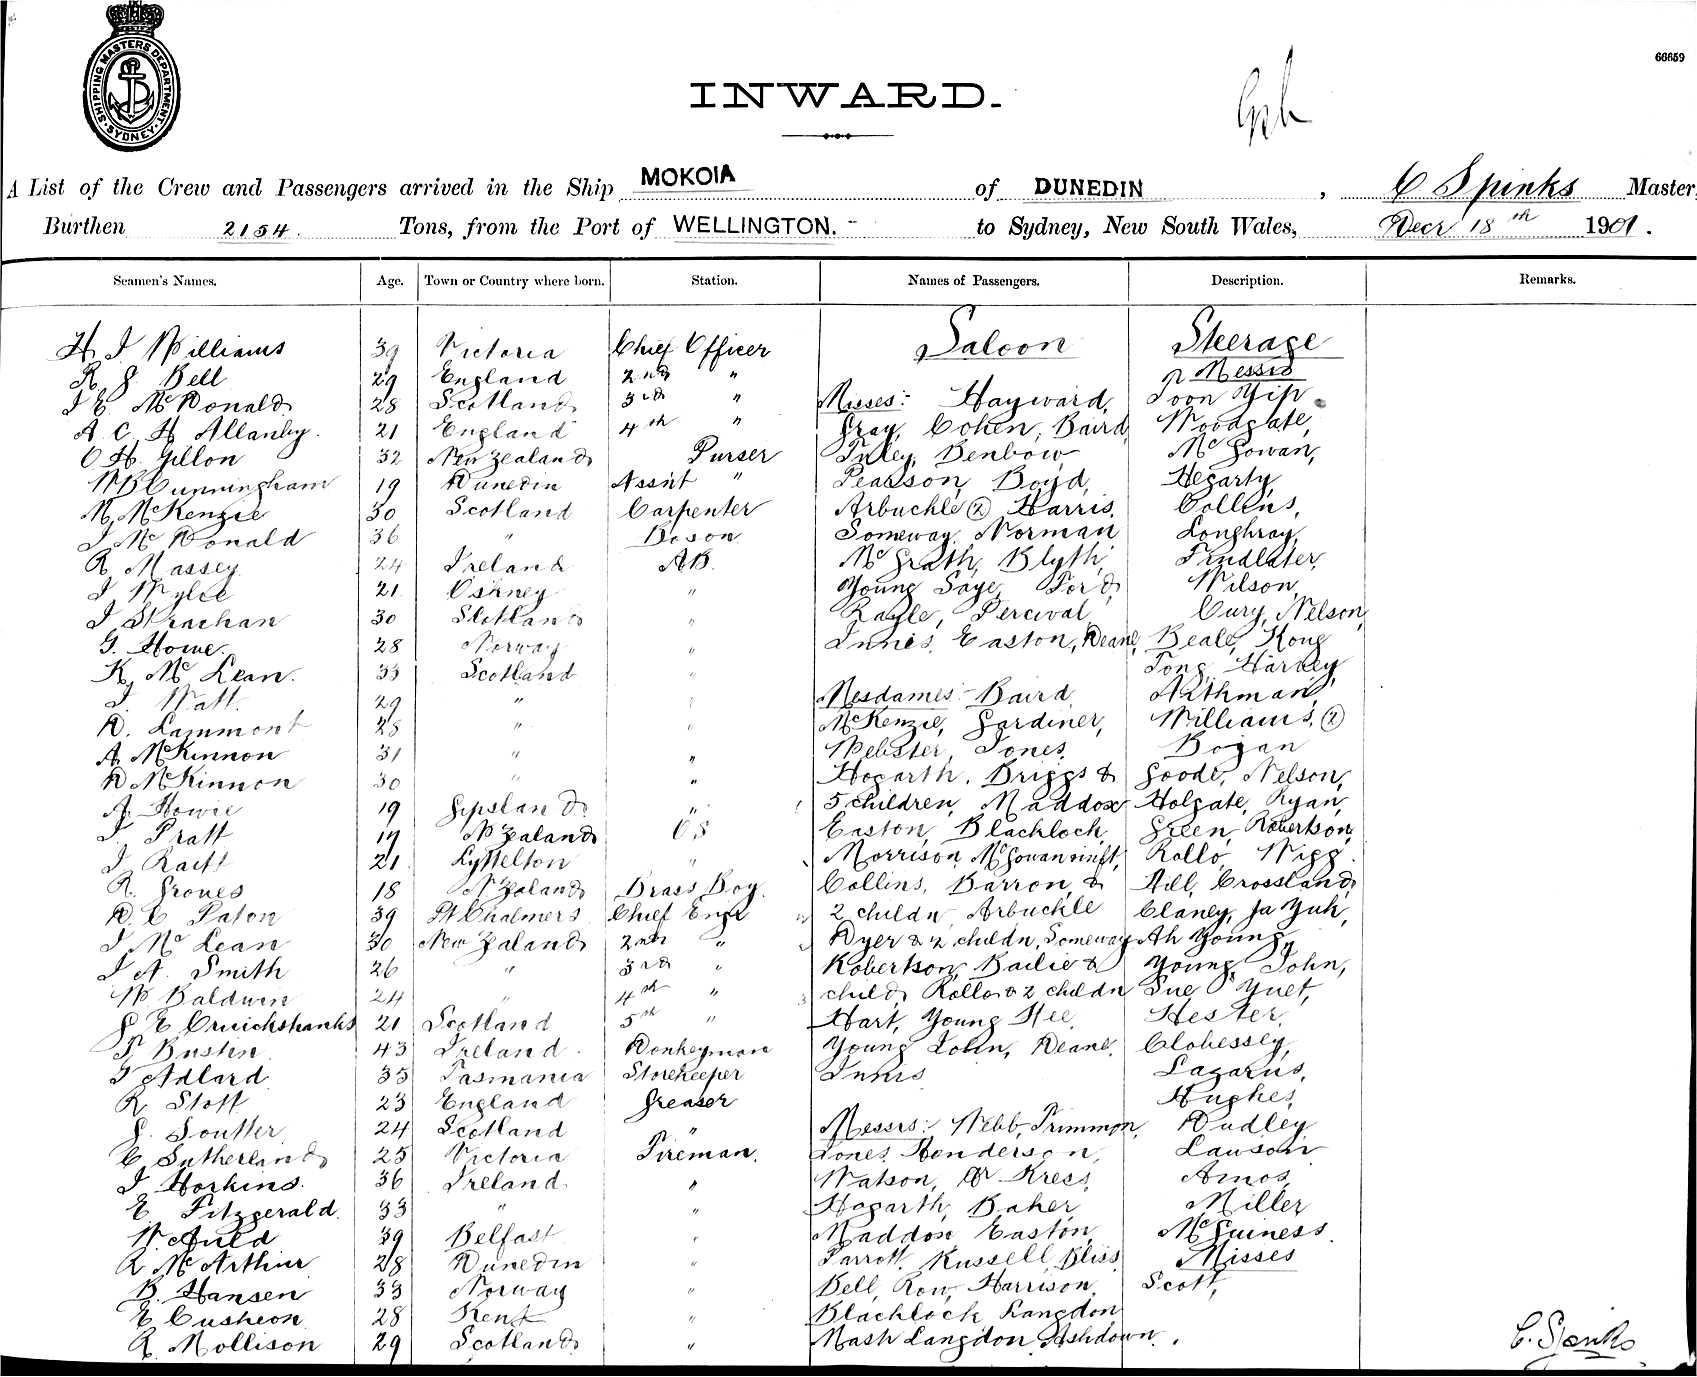 SHIPPING MASTERS DEPARTMENT
SYDNEY
66659
INWARD.
A List of the Crew and Passengers arrived in the Ship MOKOIA of DUNEDIN, C Spinks Master,
Burthen 2154. Tons, from the Port of WELLINGTON. - to Sydney, New South Wales, Decr 18th 1901.
Seamen's Names. Age. Town or Country where born. Station. Names of Passengers. Description. Remarks.
H J Williams 39 Victoria Chief Officer Saloon Steerage
R G Bell 29 England 2nd " Messrs
J E McDonald 28 Scotland 3rd " Misses:- Hayward, Joon Yip
A C H Allanby. 21 England 4th " Gray, Cohen, Baird, Woodgate,
C H. Gillon 32 New Zealand Purser Tuley, Benbow McGowan,
W B Cunningham 19 Dunedin Assnt " Pearson, Boyd, Hegarty,
M McKenzie 30 Scotland Carpenter Arbuckle (2) Harris. Collens,
J McDonald 36 " Boson Someway, Norman Loughray,
R Massey 24 Ireland AB. McGrath, Blyth, Findlater,
J Wylie 21 Orkney " Young Saye, Ford, Wilson,
J Strachan 30 Scotland " Rayle, Percival, Cury, Nelson,
G. Howe. 28 Norway " Innes, Easton, Deane, Beale, Kong
K. McLean. 33 Scotland " Tong, Harvey,
J. Watt. 29 " " Mesdames:- Baird, Nathman,
D. Lammont 28 " " McKenzie, Gardiner, Williams, (2)
A McKinnon 31 " " Webster, Jones, Bogan
D McKinnon 30 " " Hogarth, Briggs & Goode, Nelson,
A. Howie 19 Gipsland " 5 children, Maddox Holgate, Ryan,
J. Pratt 19 N Zealand OS Easton, Blachlock, Green, Robertson,
J Raitt 21 Lyttelton " Morrison, McGowan Rollo, Wigg.
R. Groves 18 N Zealand Brass Boy. Collins, Barron, & Hill, Crossland,
D. C Paton 39 Pt Chalmers Chief Engr 2 childn Arbuckle Clancy, Ja Yuh,
J McLean 30 New Zealand 2nd " Dyer & 2 childn, Someway Ah Young,
J A. Smith 26 " 3rd " Robertson, Bailie & Young John,
W Baldwin 24 " 4th " child, Rollo & 2 childn Sue Yuet,
G E Cruickshanks 21 Scotland 5th " Hart, Young Hee, Hester,
T. Bustin 43 Ireland. Donkeyman Young John, Deane, Clohessey,
J Adlard 35 Tasmania Storekeeper Innis Lazarus,
R Stott 23 England Greaser Hughes,
G. Soutter 24 Scotland " Messrs:- Webb, Trimmon, Dudley
C Sutherland 25 Victoria Fireman. Jones, Henderson, Lawson
J Horkins. 36 Ireland. " Watson, Dr Kress, Amos,
E Fitzgerald. 33 " " Hogarth, Baker, Miller
W. Auld 39 Belfast " Maddox Easton, McGuiness.
R McArthur 28 Dunedin " Parrott, Russell, Bliss, Misses
B. Hansen 33 Norway " Bell, Row, Harrison, Scott,
E Cusheon 28 Kent " Blachlock, Langdon
R. Mollison 29 Scotland " Nash Langdon, Ashdown.
C. Spinks